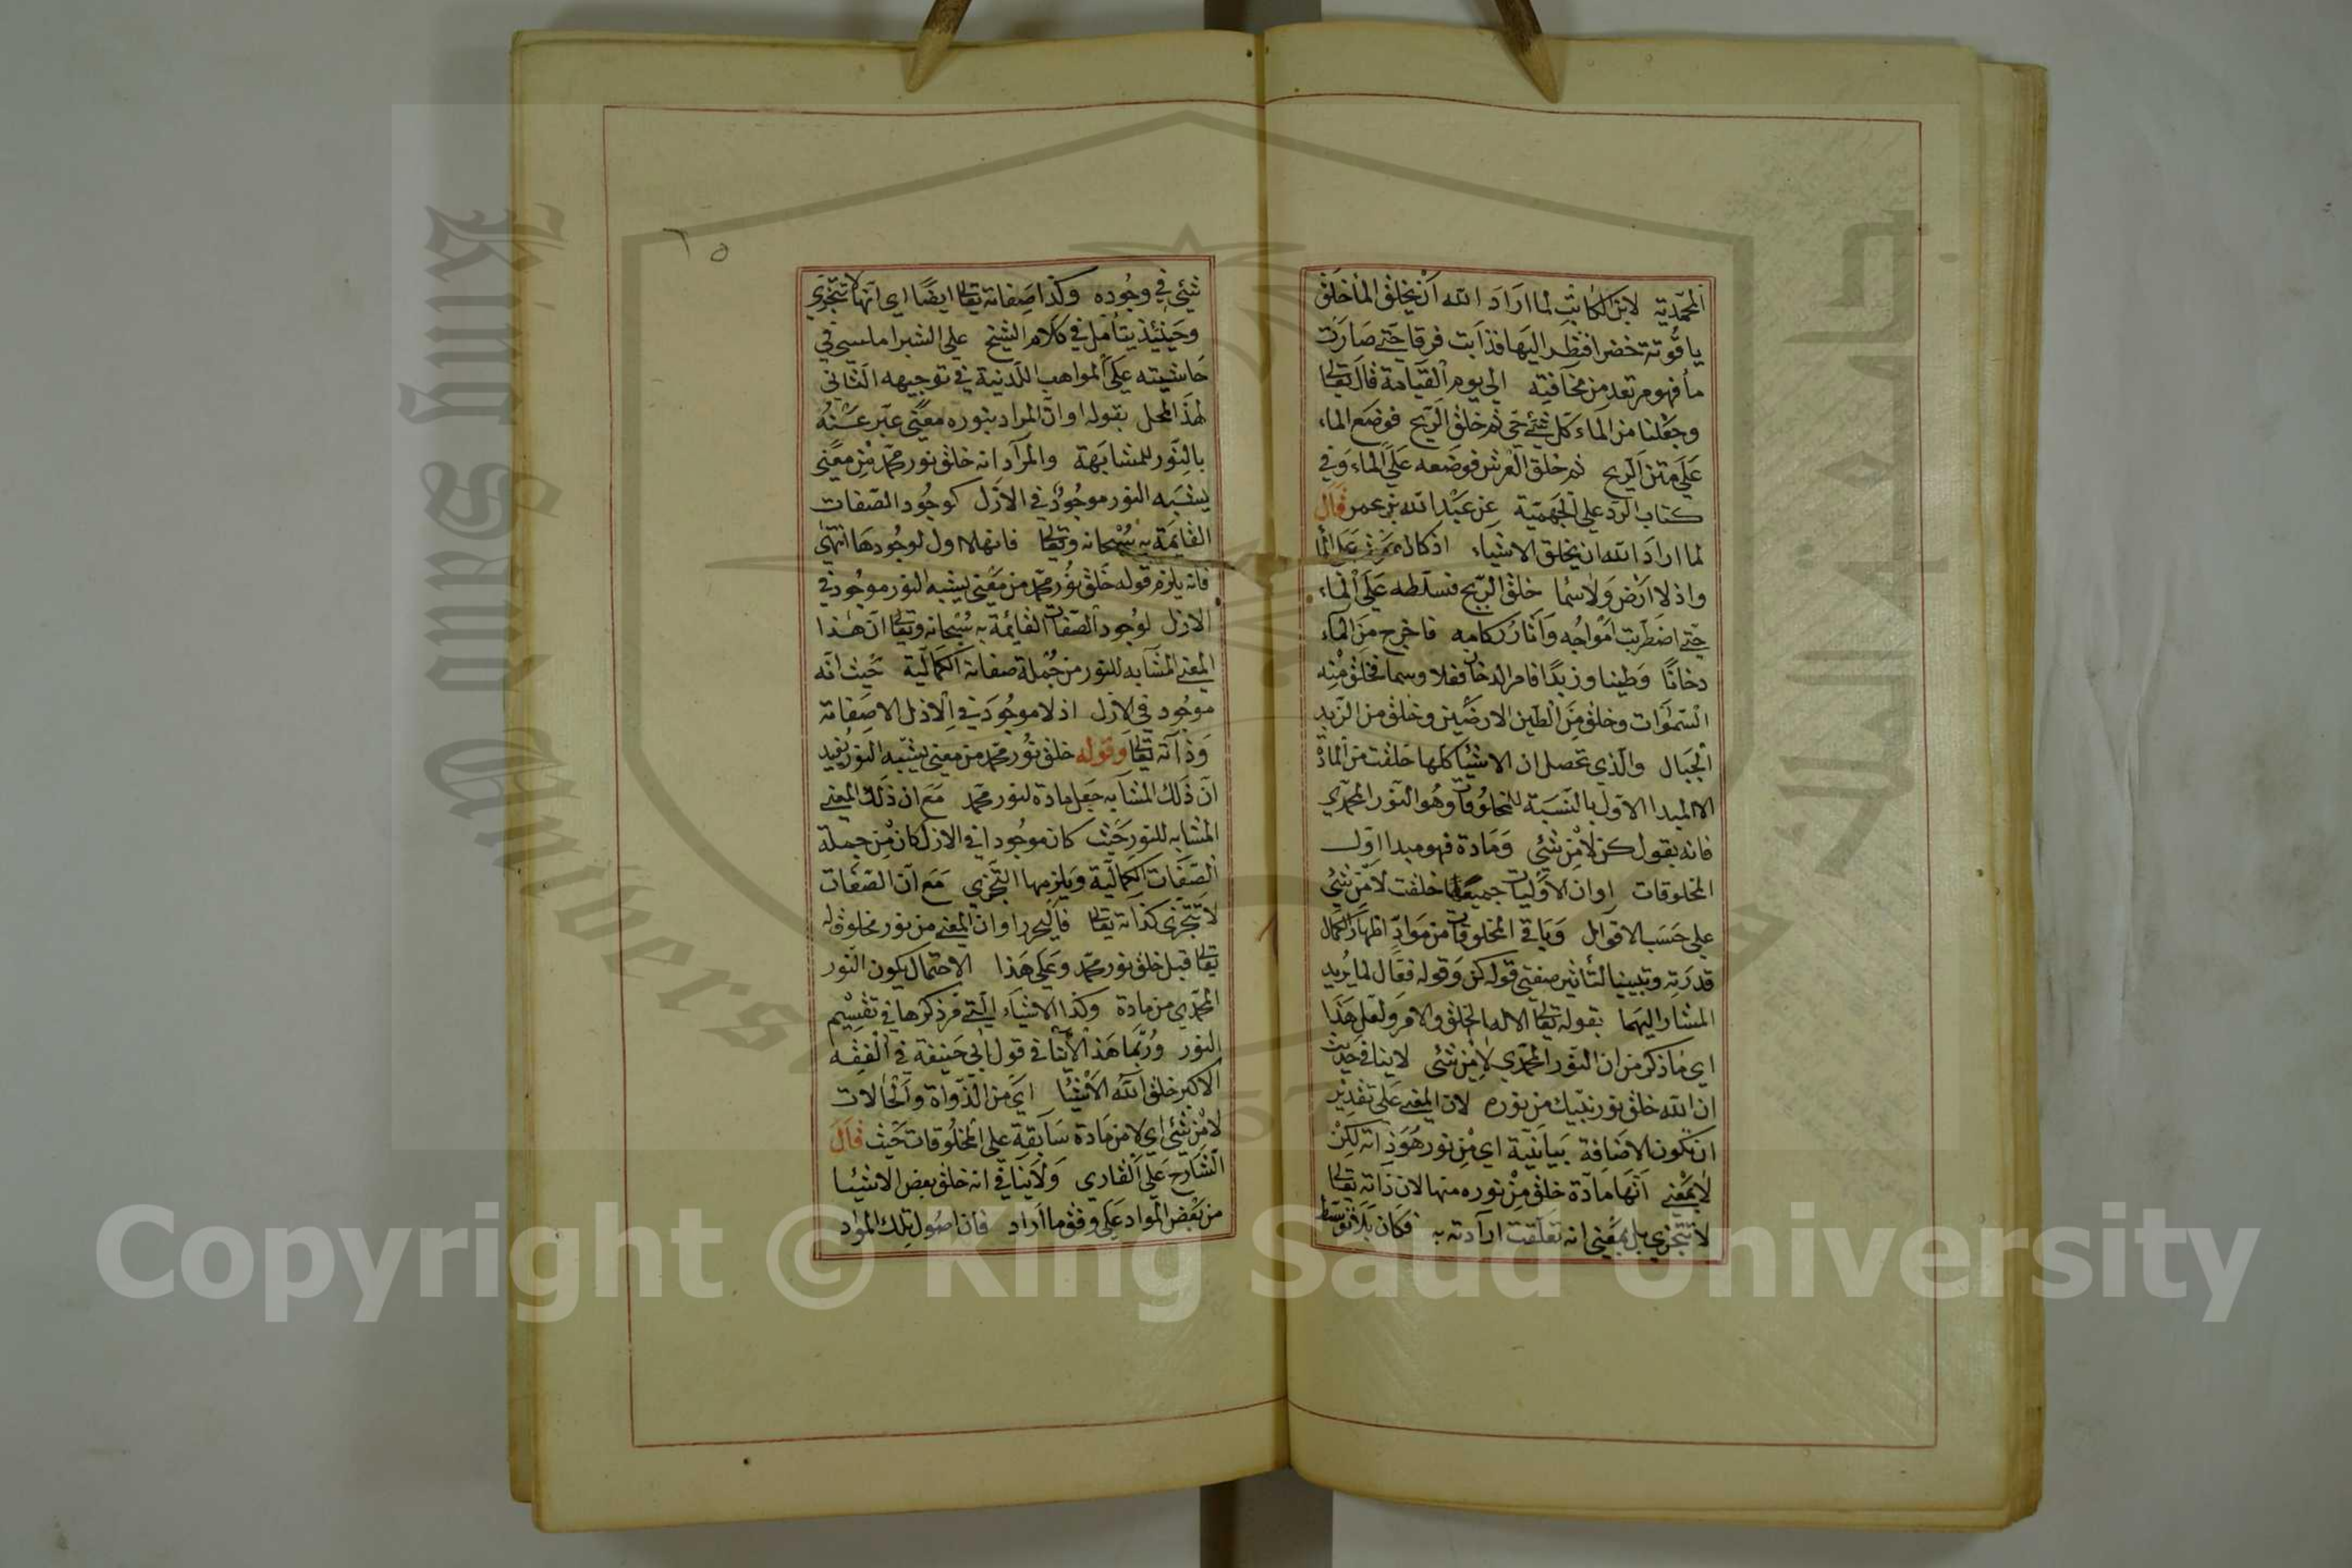 المحمدية لابن الكابت لما اراد الله ان يخلق الما خلق
ياقوتة خضرا فنظر اليها فذابت فرقا حتى صارت
ما فهو مرتعد من مخافته الي يوم القيامة قال تعالى
وجعلنا من الماء كل شئ حي ثم خلق الريح فوضع الماء
على متن الريح ثم خلق العرش فوضعه على الماء وفي
كتاب الرد علي الجهمية عن عبد الله بن عمر قال
لما اراد الله ان يخلق الاشياء اذ كان عرشه على الما
واذ لا ارض ولا سما خلق الريح فسلطه على الماء
حتى اضطربت امواجه وأثار ركامه فاخرج من الماء
دخانا وطينا وزبدا فامر الدخان فعلا وسما فخلق منه
السموات وخلق من الطين الارضين وخلق من الزبد
الجبال والذي تحصل ان الاشيا كلها خلقت من المادة
الا المبدا الاول بالنسبة للمخلوقات وهو النور المحمدي
فانه بقول كن لا من شئ ومادة فهو مبدا اول
المخلوقات او ان الاوليات جميعها خلقت لا من شئ
علي حسب الاقوال وباقي المخلوقات من مواد اظهار الكمال
قدرته وتبيينا لتأثير صفتي قوله كن وقوله فعال لما يريد
المشار اليهما بقوله تعالى الا له الخلق والامر ولعل هذا
اي ما ذكر من ان النور المحمدي لا من شئ لا ينافي حديث
ان الله خلق نور نبيك من نوره لان المعنى على تقدير
ان تكون الاضافة بيانية اي من نور هو ذاته لكن
لا بمعنى انها مادة خلق من نوره منها لان ذاته تعالى
لا تتجزي بل بمعني انه تعلقت ارادته به فكان بلا توسط
٦٥
شئ في وجوده وكذا صفاته تعالى ايضا اي انها لا تتجزي
وحينئذ يتأمل في كلام الشيخ علي الشبراملسي في
حاشيته على المواهب اللدنية في توجيهه الثاني
لهذا المحل بقوله او ان المراد بنوره معنى عبر عنه
بالنور للمشابهة والمراد انه خلق نور محمد من معنى
يشبه النور موجود في الازل كوجود الصفات
القايمة به سبحانه وتعالى فانها لا اول لوجودها انتهى
فانه يلزم قوله خلق نور محمد من معنى يشبه النور موجود في
الازل لوجود الصفات القائمة به سبحانه وتعالى ان هذا
المعني المشابه للنور من جملة صفاته الكمالية حيث انه
موجود في الازل اذ لا موجود في الازل الا صفاته
وذاته تعالى وقوله خلق نور محمد من معنى يشبه النور يفيد
ان ذلك المشابه جعل مادة لنور محمد مع ان ذلك المعني
المشابه للنور حيث كان موجودا في الازل كان من جملة
الصفات الكمالية ويلزمها التجزي مع ان الصفات
لا تتجزى كذاته تعالى فاليحرر او ان المعني من نور مخلوق له
تعالى قبل خلق نور محمد وعلى هذا الاحتمال يكون النور
المحمدي من مادة وكذا الاشياء التي مر ذكرها في تقسيم
النور وربما هذا لا ينافي قول ابي حنيفة في الفقه
الاكبر خلق الله الاشيا اي من الذواة والحالات
لا من شئ اي لا من مادة سابقة علي المخلوقات حيث قال
الشارح علي القاري ولا ينافي انه خلق بعض الاشيا
من بعض المواد على وفق ما اراد فان اصول تلك المواد
Copyright © King Saud University
King Saud University